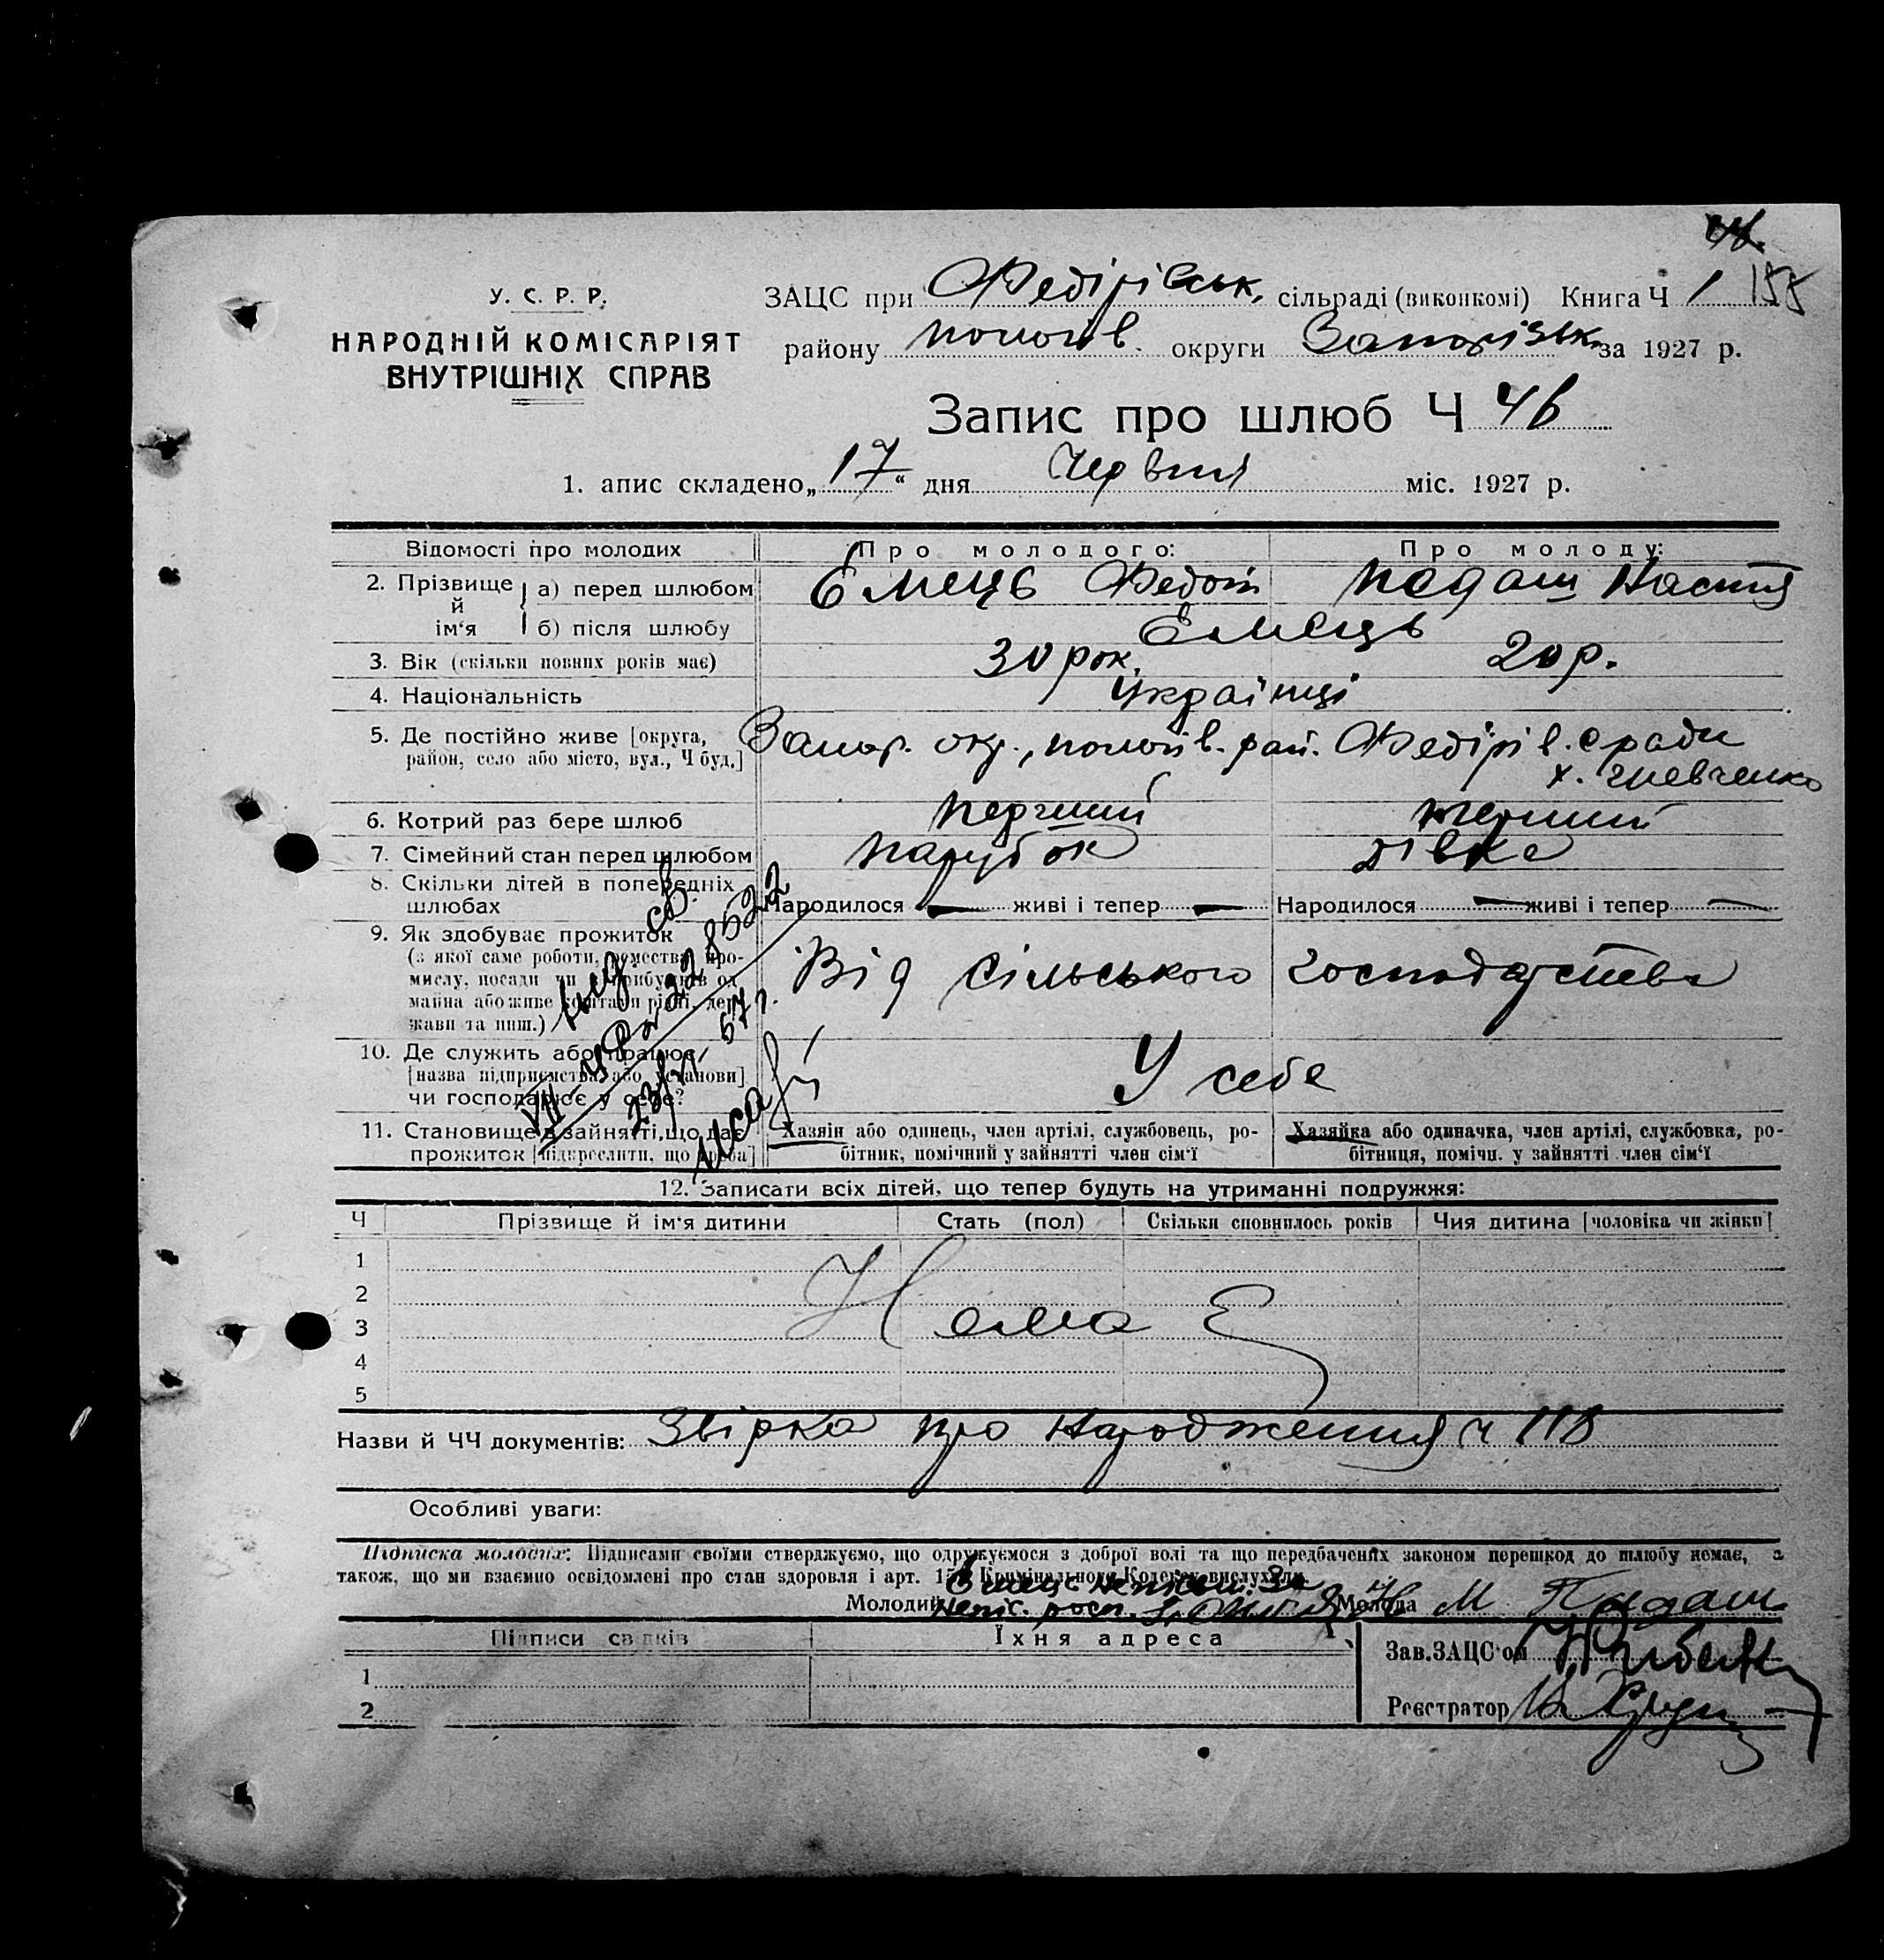 У. С. Р. Р.
НАРОДНІЙ КОМІСАРІЯТ
ВНУТРІШНІХ СПРАВ
ЗАЦС при Федірівськ. сільраді (виконкомі) Книга Ч 1
району пологів. округи Запорізьк. за 1927 р.
Запис про шлюб Ч 46
1. апис складено „17“ дня Червня міс. 1927 р.
Відомості про молодих Про молодого: Про молоду:
2. Прізвище й ім‘я а) перед шлюбом Ємець Федот Падащ Настя
б) після шлюбу Ємець
3. Вік (скільки повних років має) 30 рок. 20 р.
4. Національність Українці
5. Де постійно живе [округа, район, село або місто, вул., Ч буд.] Запор. окр., пологів. рай. Федірів. сради
х. Шевченко
6. Котрий раз бере шлюб перший перший
7. Сімейний стан перед шлюбом парубок дівка
8. Скільки дітей в попередніх шлюбах Народилося — живі і тепер — Народилося — живі і тепер —
9. Як здобуває прожиток
(з якої саме роботи, ремества, промислу, посади чи прибутків од майна або живе коштами рідні, держави та инш.) Від сільського господарства
10. Де служить або працює
[назва підприємства або установи]
чи господарює у себе? У себе
11. Становище в зайнятті, що дає прожиток [підкреслити, що треба]
Хазяін або одинець, член артілі, службовець, робітник, помічний у зайнятті член сім‘ї
Хазяйка або одиначка, член артілі, службовка, робітниця, помічн. у зайнятті член сім‘ї
12. Записати всіх дітей, що тепер будуть на утриманні подружжя:
Ч Прізвище й ім‘я дитини Стать (пол) Скільки сповнилось років Чия дитина [чоловіка чи жінки]
1
2
3
4
5
Немає
Назви й ЧЧ документів: Звірка про народження ч 118
Особливі уваги:
Підписка молодих: Підписами своїми стверджуємо, що одружуємося з доброї волі та що передбачених законом перешкод до шлюбу немає, а
також, що ми взаємно освідомлені про стан здоровля і арт. Кримінального Кодексу вислухали
Молодий Ємець Молода Падащ
Підписи свідків Їхня адреса
1
2
Зав.ЗАЦС‘ом
Реєстратор